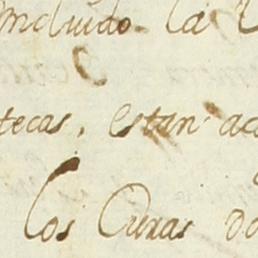 incluido la
tecas, estan ac
los Curas do